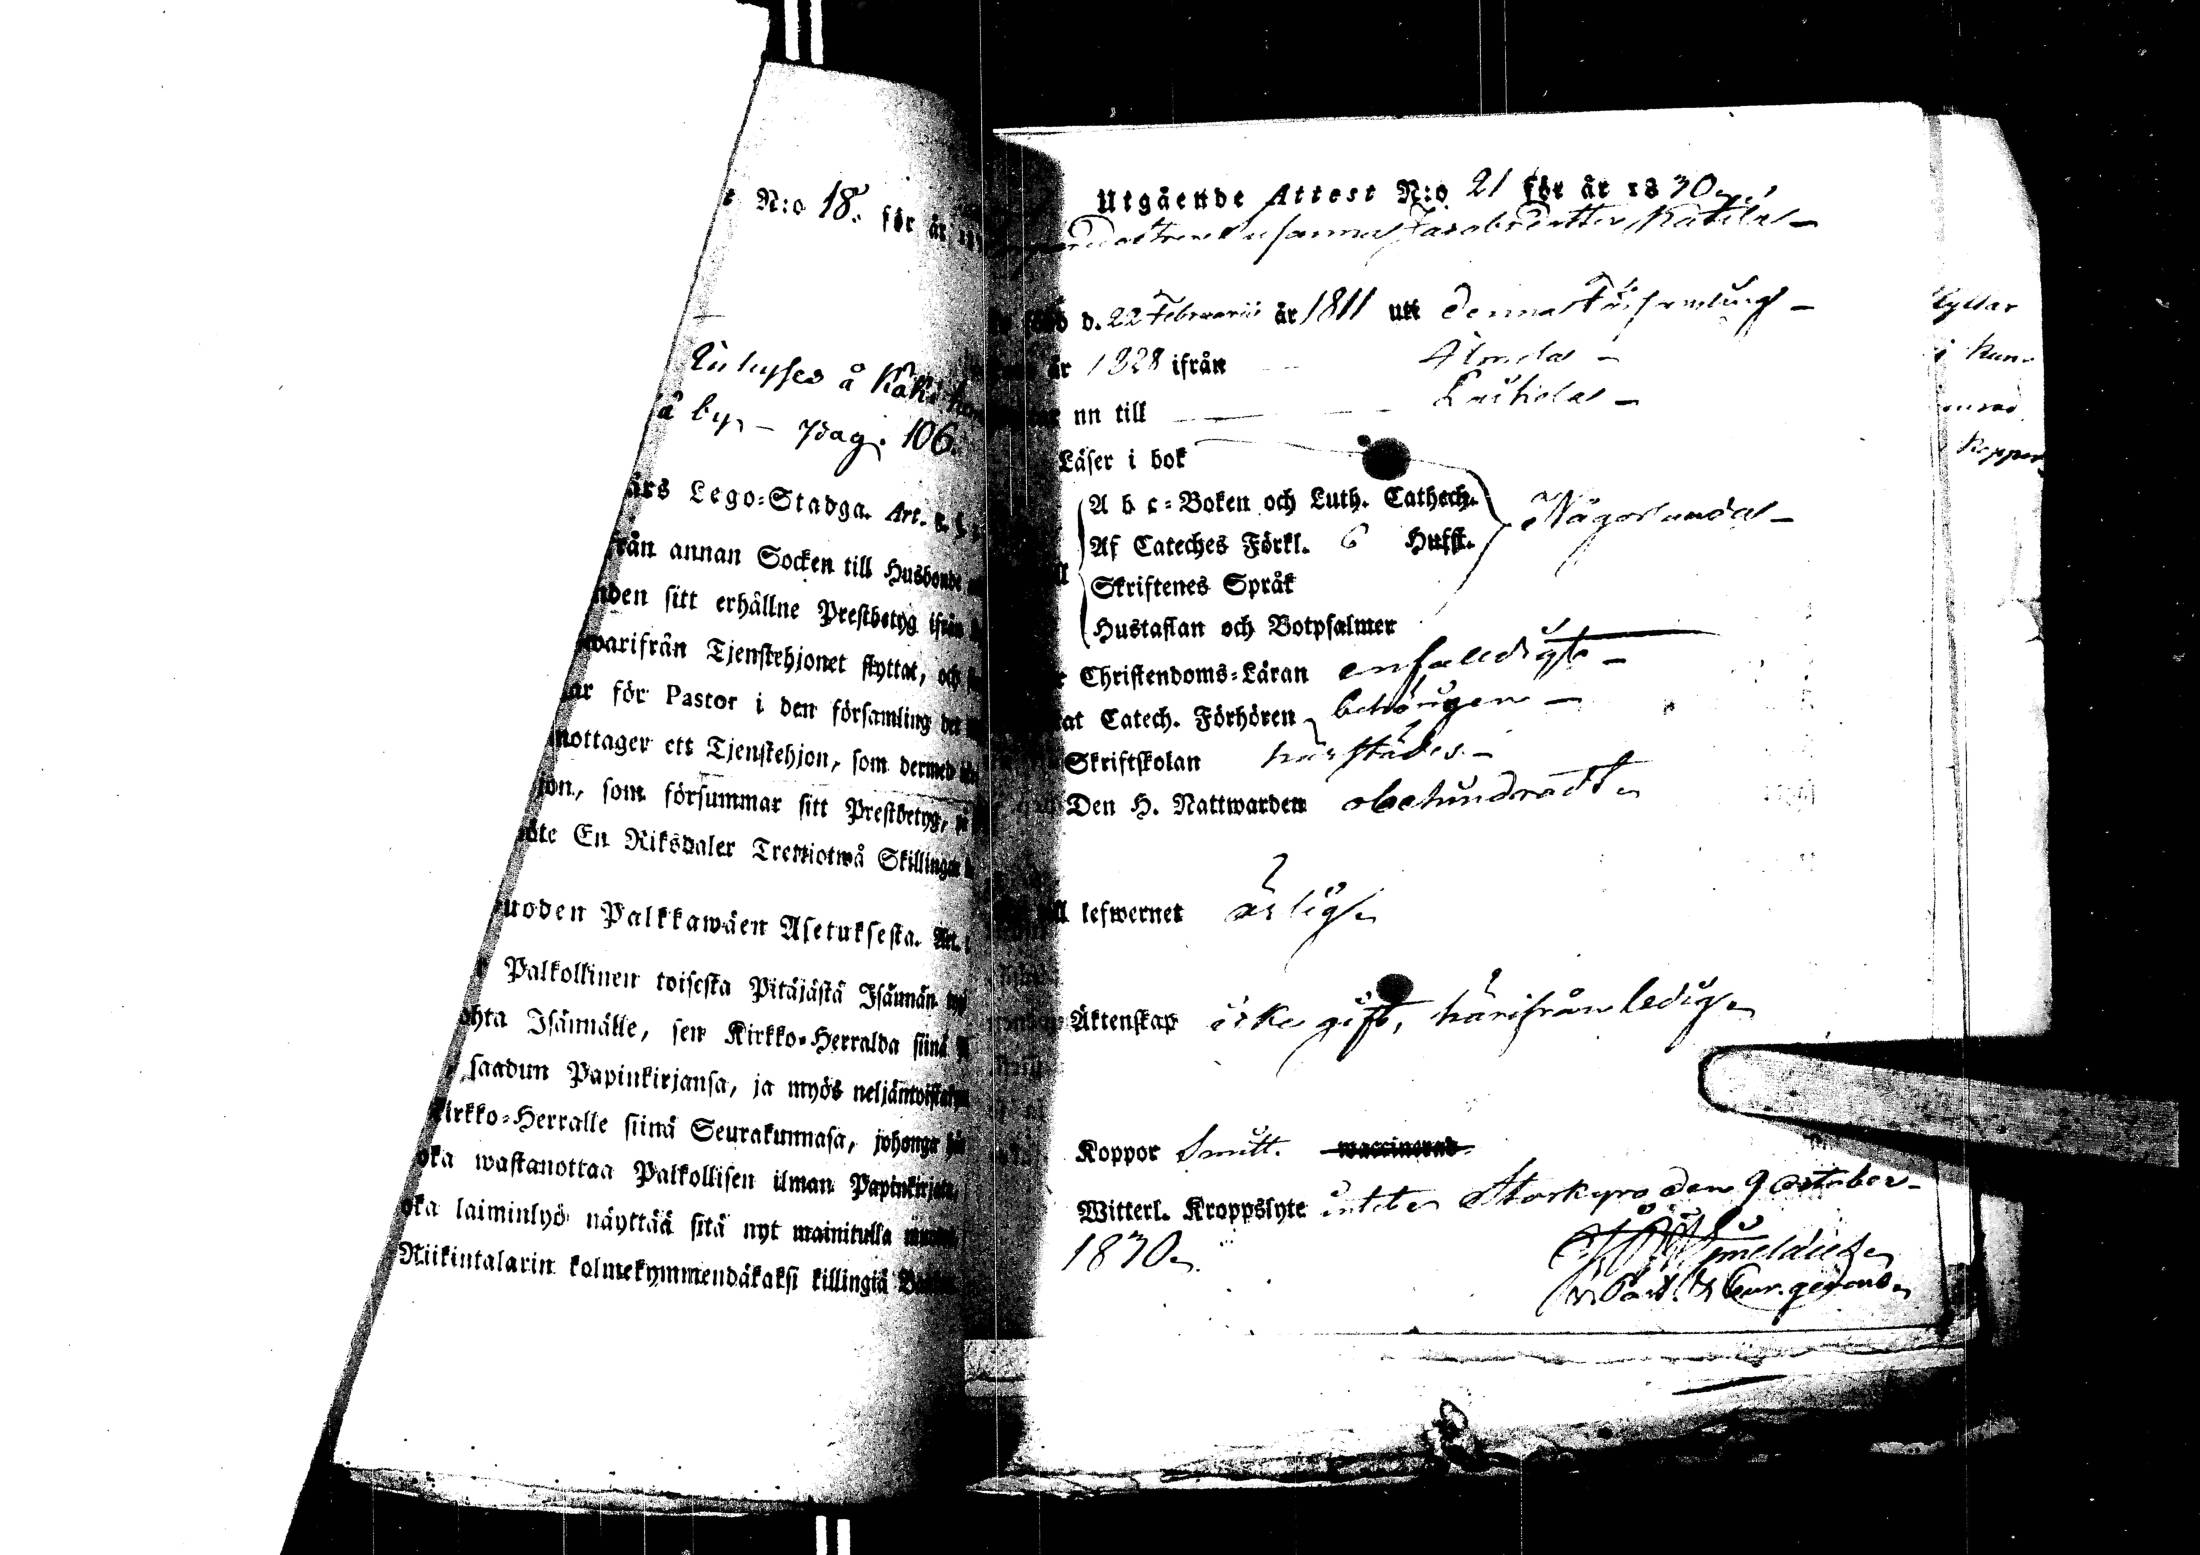 N:o 18. för år
å Käki
å by. – pag. 106.
års Lego=Stadga. Art.
från annan Socken till Husbonde
nden sitt erhållne Prestbetyg ifrån
warifrån Tjenstehjonet flyttat, och
ar för Pastor i den församling det
mottager ett Tjenstehjon, som dermed
jon, som försummar sitt Prestbetyg,
böte En Riksdaler Trettiotwå Skillingar
uoden Palkkawäen Asetuksesta. Art.
Palkollinen toisesta Pitäjästä Isännän
ohta Isännälle, sen Kirkko=Herralda siinä
saadun Papinkirjansa, ja myös
Kirkko=Herralle siinä Seurakunnasa, johonga
oka wastanottaa Palkollisen ilman Papinkirjata,
oka laiminlyö näyttää sitä nyt mainitulla
Riikintalarin kolmekymmendäkaksi killingiä
Utgående Attest N:o 21 för år 1830
Susanna Jacobsdotter Katila –
född d. 22 Februarii år 1811 uti denna Församling –
år 1828 ifrån Ylonda –
nn till
Läser i bok
A b c=Boken och Luth. Cathech.
Af Cateches Förkl. 6 Hufst. Någorlunda –
Skriftenes Språk
Hustaflan och Botpsalmer
Christendoms=Läran enfaldigt –
Catech. Förhören behörigen –
Skriftskolan härstädes –
Den H. Nattwarden obehindradt
till lefwernet ärlig
Äktenskap icke gift, härifrån ledig
Koppor Smitt. waccinerad
Witterl. Kroppslyte intet Storkyro den 9 october
1830
Past. & Cur. gerens
flyttar
i
Koppor